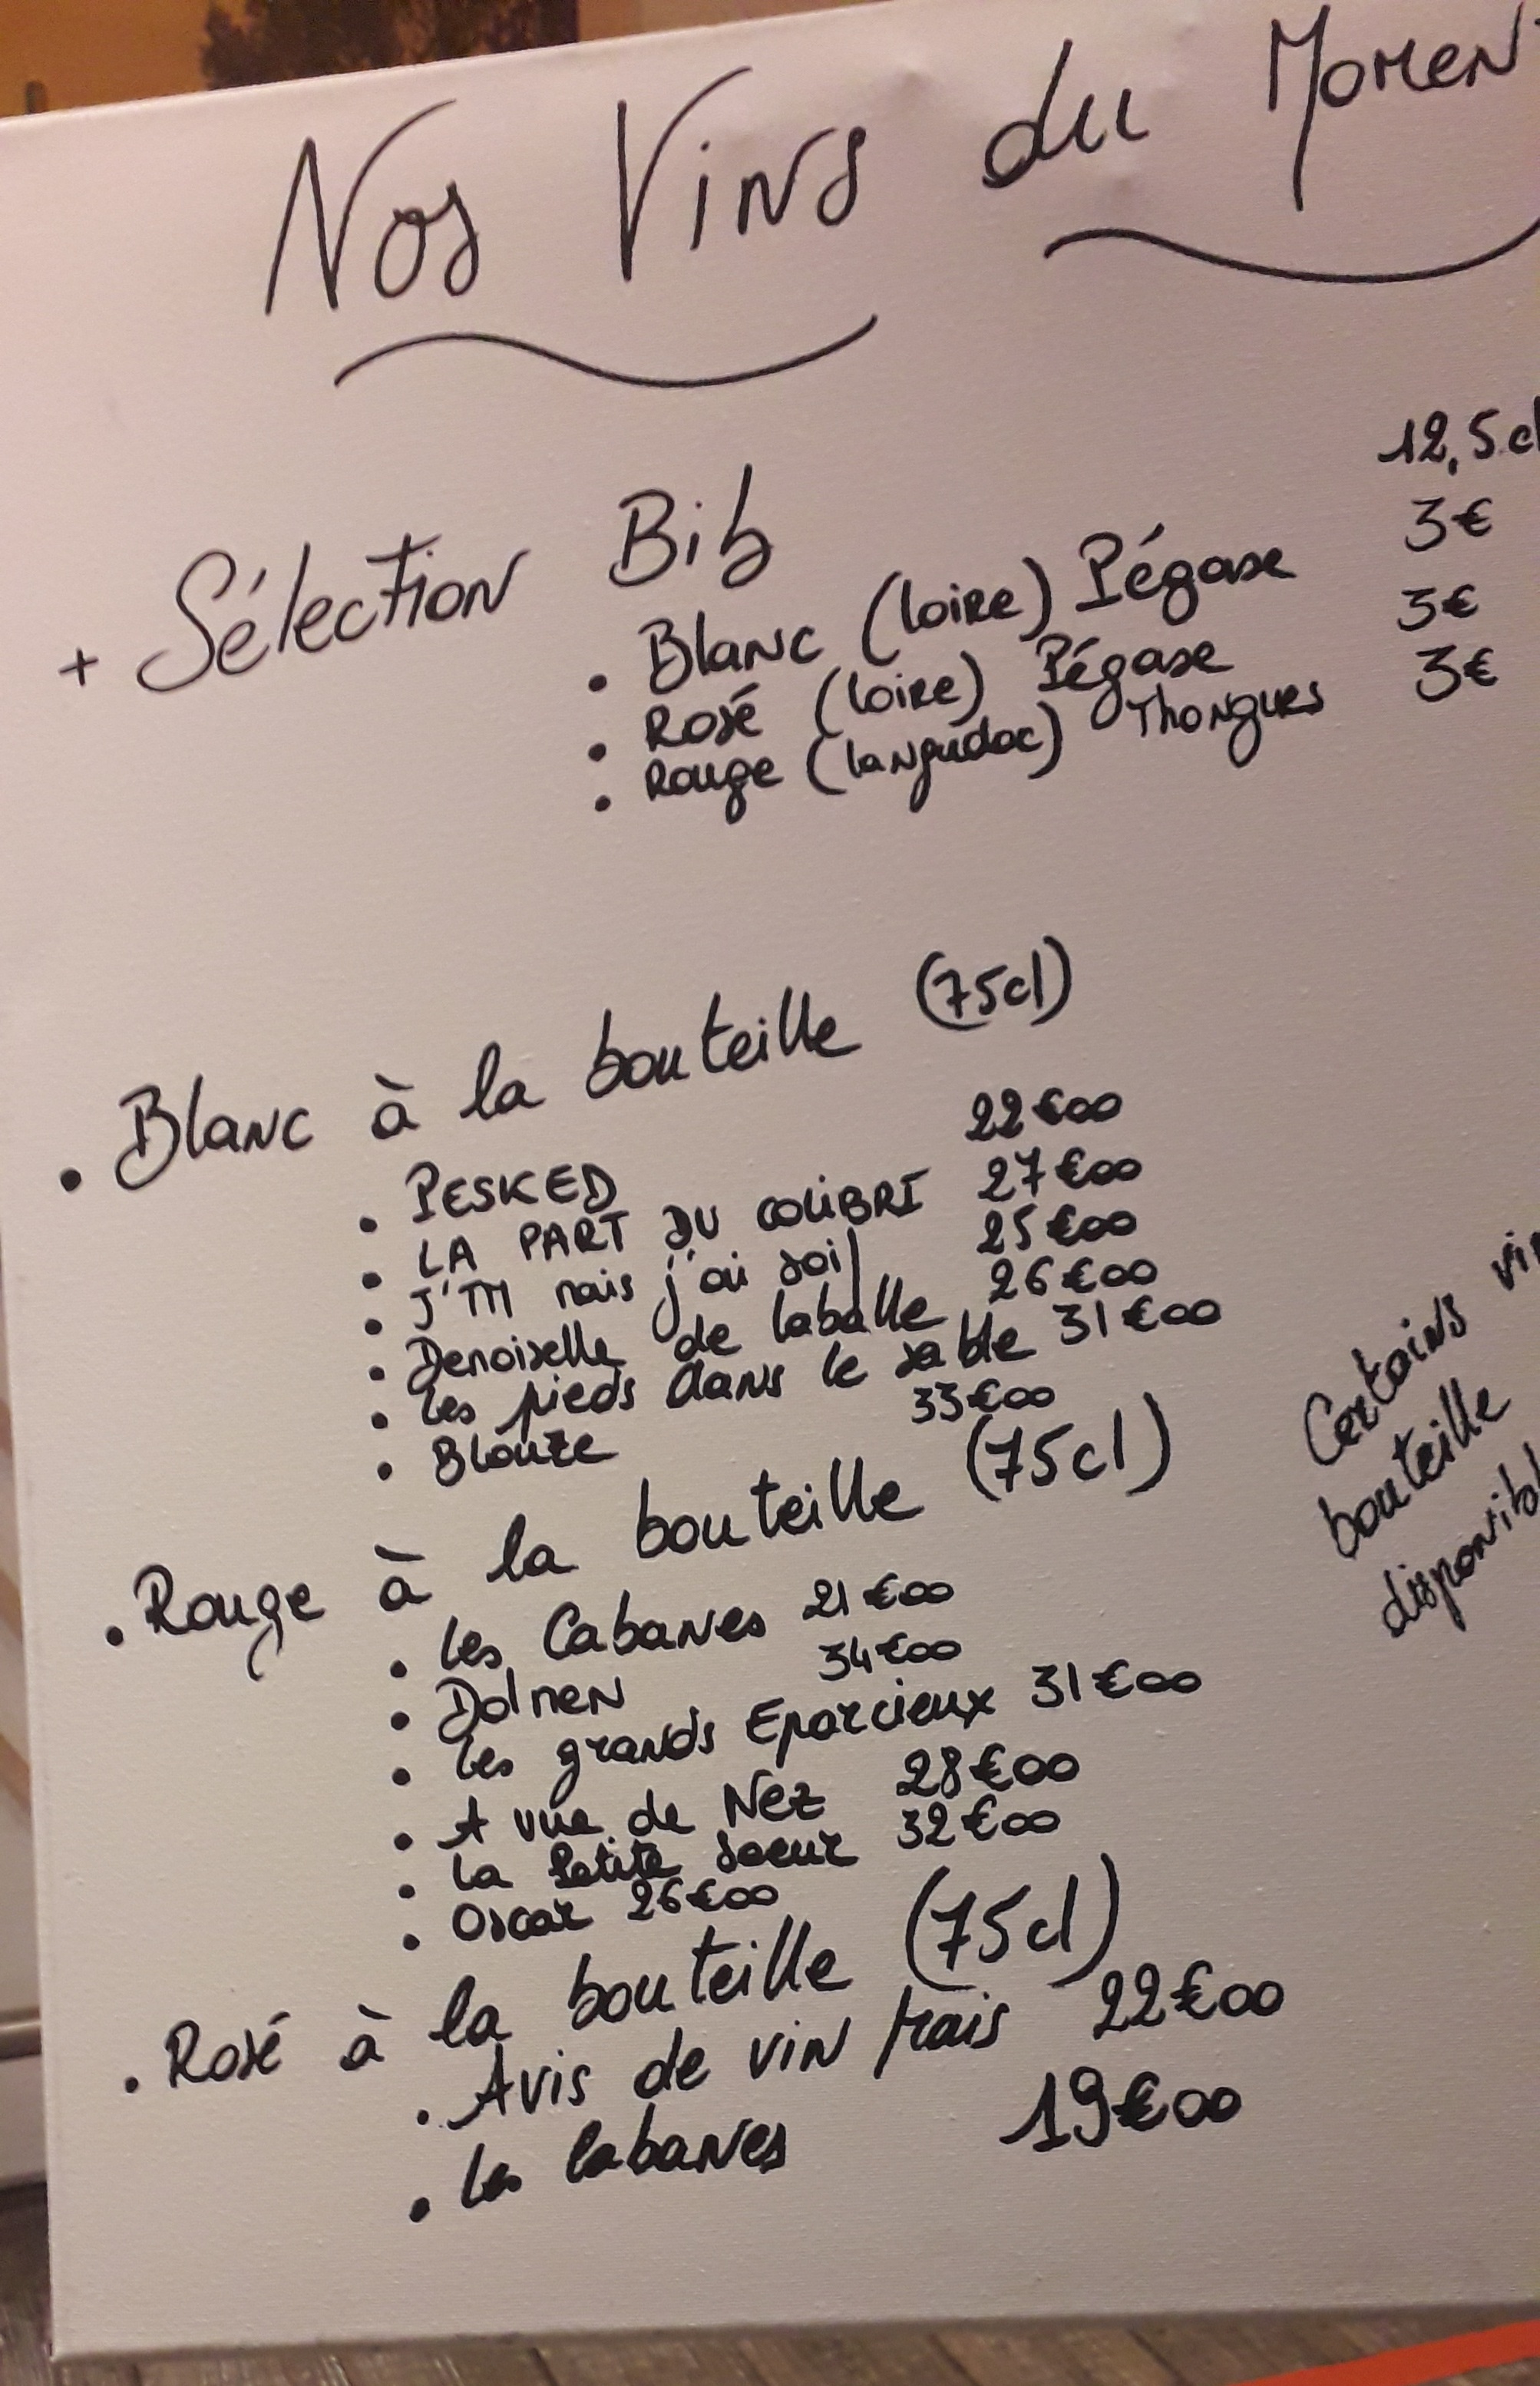 Nos Vins du Momen
12,5 cl
+ Sélection Bib
• Blanc (loire) Pégase 3€
• Rosé (loire) Pégase 3€
• Rouge (languedoc) Thongues 3€
• Blanc à la bouteille (75cl)
• PESKED 22€00
• LA PART DU COLIBRI 27€00
• J'TM mais j'ai soif 25€00
• Demoiselle de laballe 26€00
• les pieds dans le sable 31€00
• Blouze 33€00
• Rouge à la bouteille (75cl)
• les Cabanes 21€00
• Dolmen 34€00
• les grands Eparcieux 31€00
• A vue de Nez 28€00
• La Petite soeur 32€00
• Oscar 26€00
• Rosé à la bouteille (75cl)
• Avis de vin frais 22€00
• les Cabanes 19€00
Certains vin
bouteille
disponibl